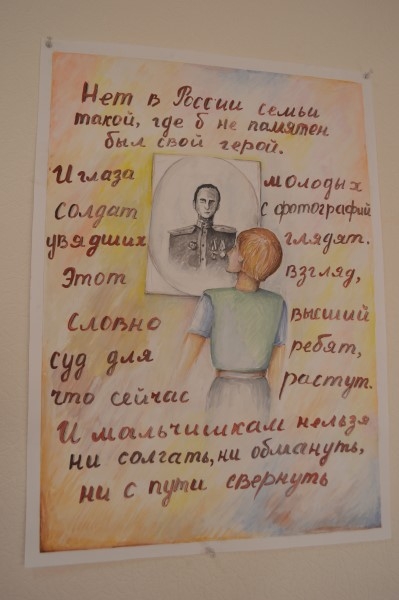 Нет в России семьи
такой, где б не памятен
был свой герой.
И глаза молодых
солдат с фотографий
увядших глядят.
Этот взгляд,
словно высший
суд для ребят,
что сейчас растут.
И мальчишкам нельзя
ни солгать, ни обмануть,
ни с пути свернуть